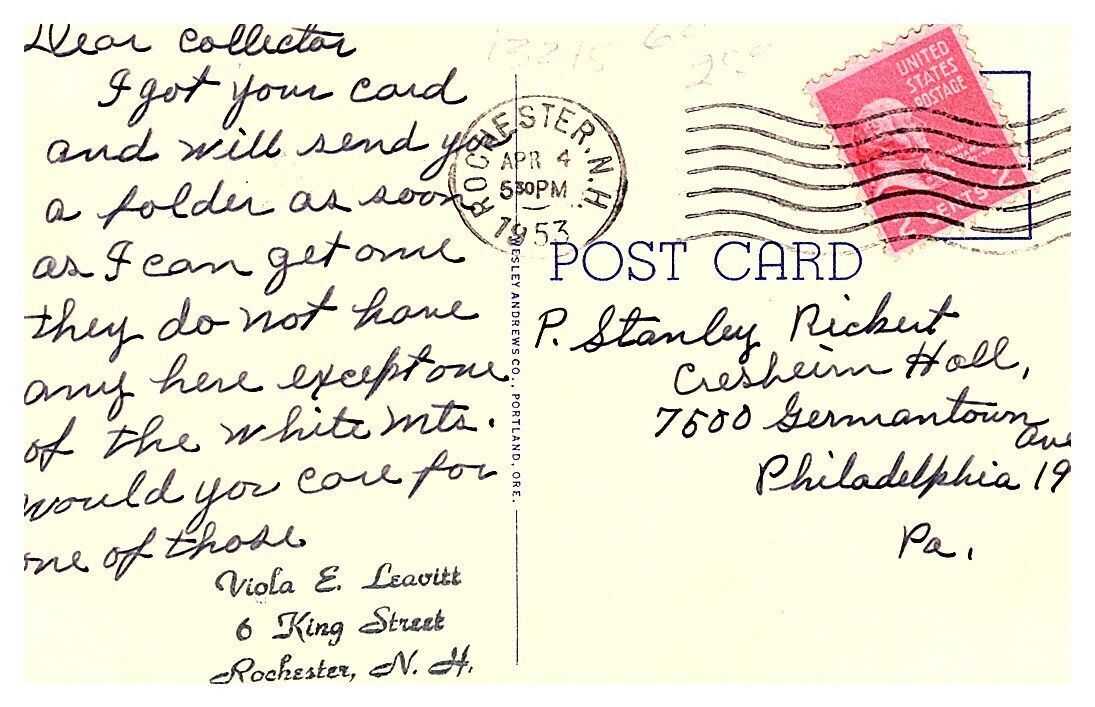 Dear Collector
I got your card
and will send you
a folder as soon
as I can get one
they do not have
any here except one
of the White Mts.
would you care for
one of those
Viola E. Leavitt
6 King Street
Rochester, N. H.
WESLEY ANDREWS CO., PORTLAND, ORE.
13215
ROCHESTER, N.H.
APR 4
5 30 PM
1953
UNITED
STATES
POSTAGE
2 CENTS 2
POST CARD
P. Stanley Rickert
Cresheim Hall,
7500 Germantown
Ave
Philadelphia 19
Pa.